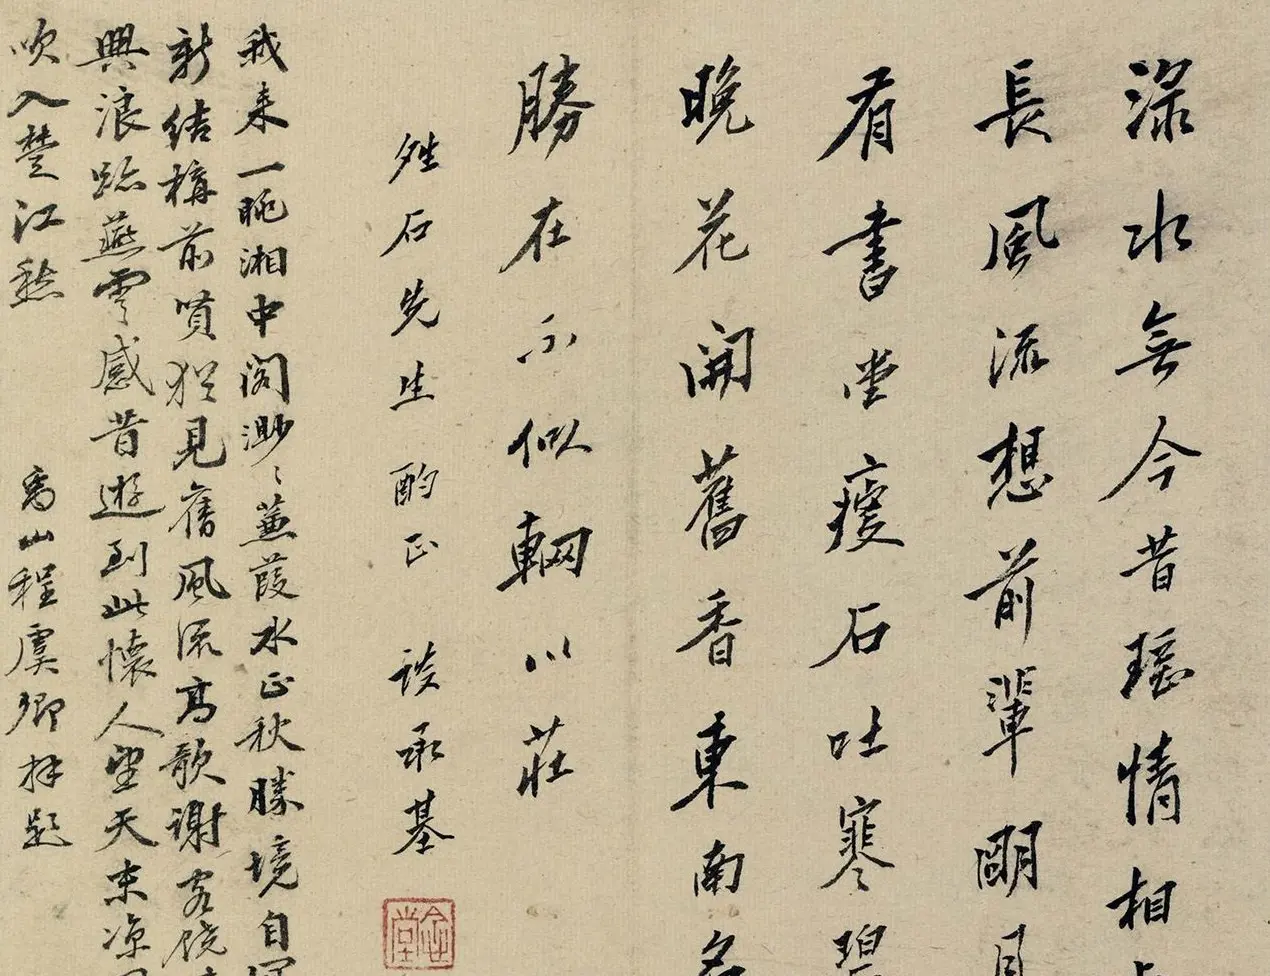 渌水無今昔瑶情相
長風流想前輩剛
看書堂瘦石吐寒碧
晚花開舊香東南名
勝在不似輞川莊
姓石先生酌正 談承基
我来一眺湘中閣渺〻蒹葭水正秋勝境自
新結構前賢猶見舊風流高歌謝客饒
興浪跡燕雲感昔遊到此懷人望天末涼
吹入楚江愁
禹山程虞卿拜題
念堂